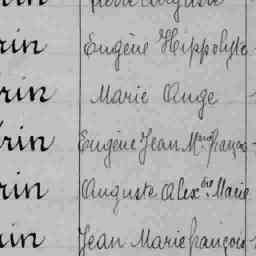 rin Eugène Hippolyte
rin Marie Ange
rin Eugène Jean M. François
rin Auguste Alexdre Marie
rin Jean Marie François